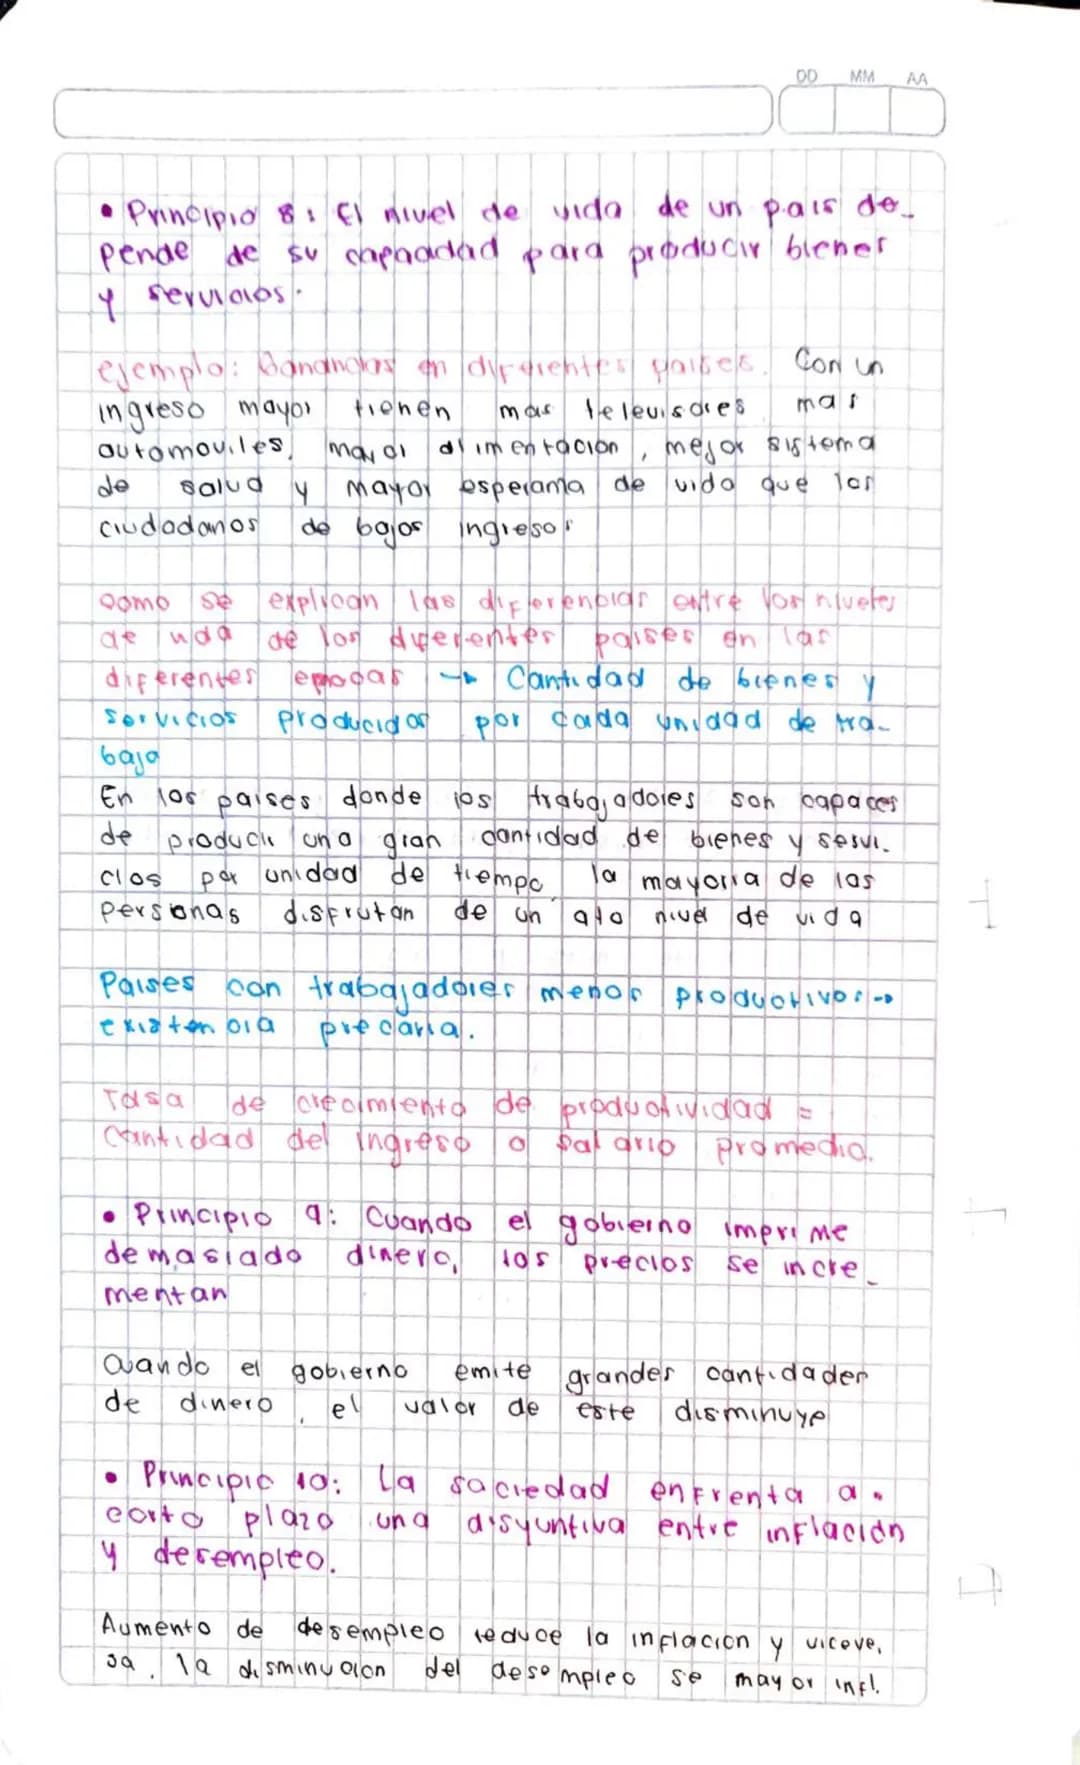 DD MM AA
• Principio 8: El nivel de vida de un pais de-
pende de su capacidad para producir bienes
y servicios.
ejemplo: Ganancias en diferentes paises. Con un
ingreso mayor tienen mas televisores mas
automoviles, mayor alimentacion, mejor sistema
de salud y mayor esperanza de vida que los
ciudadanos de bajos ingresos
como se explican las diferencias entre los niveles
de vida de los diferentes paises en las
diferentes epocas → Cantidad de bienes y
servicios producidos por cada unidad de tra-
bajo
En los paises donde los trabajadores son capaces
de producir una gran cantidad de bienes y servi-
cios por unidad de tiempo la mayoria de las
personas disfrutan de un alto nivel de vida
Paises con trabajadores menos productivos →
existencia precaria.
Tasa de crecimiento de productividad =
Cantidad del ingreso o salario promedio.
• Principio 9: Cuando el gobierno imprime
demasiado dinero, los precios se incre-
mentan
Cuando el gobierno emite grandes cantidades
de dinero, el valor de este disminuye
• Principio 10: La sociedad enfrenta a
corto plazo una disyuntiva entre inflación
y desempleo.
Aumento de desempleo reduce la inflacion y viceve,
sa, la disminucion del desempleo se mayor infl.